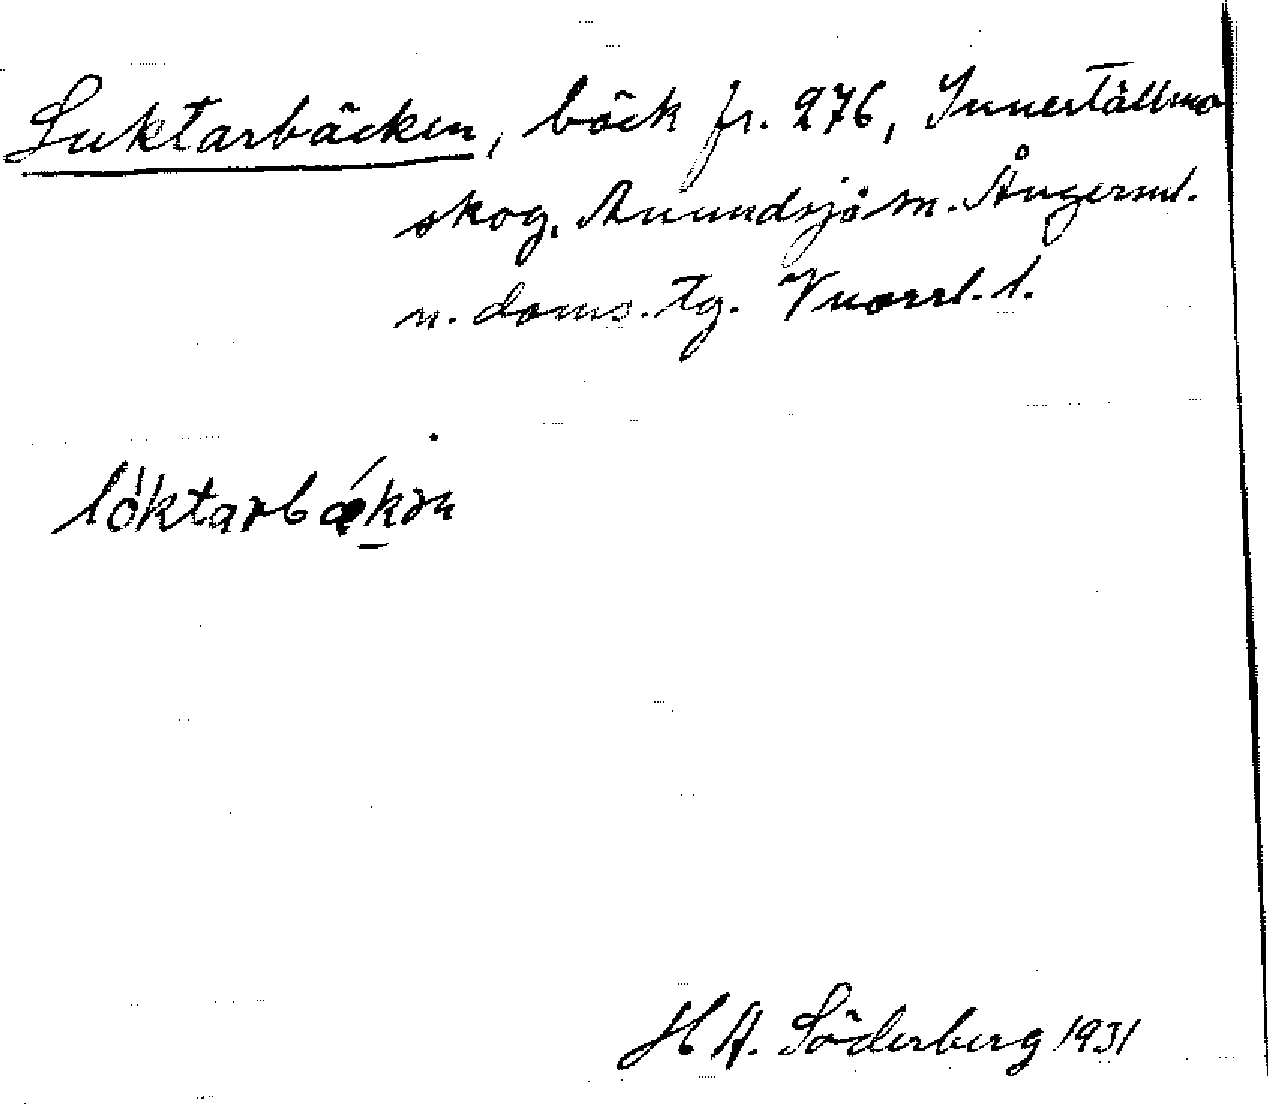 Luktarbäcken, bäck fr. 276, Innertällmo
skog, Anundsjö sn. Ångerml.
n. doms. tg. Vnorrl. l.
löktarbækən
H A. Söderberg 1931